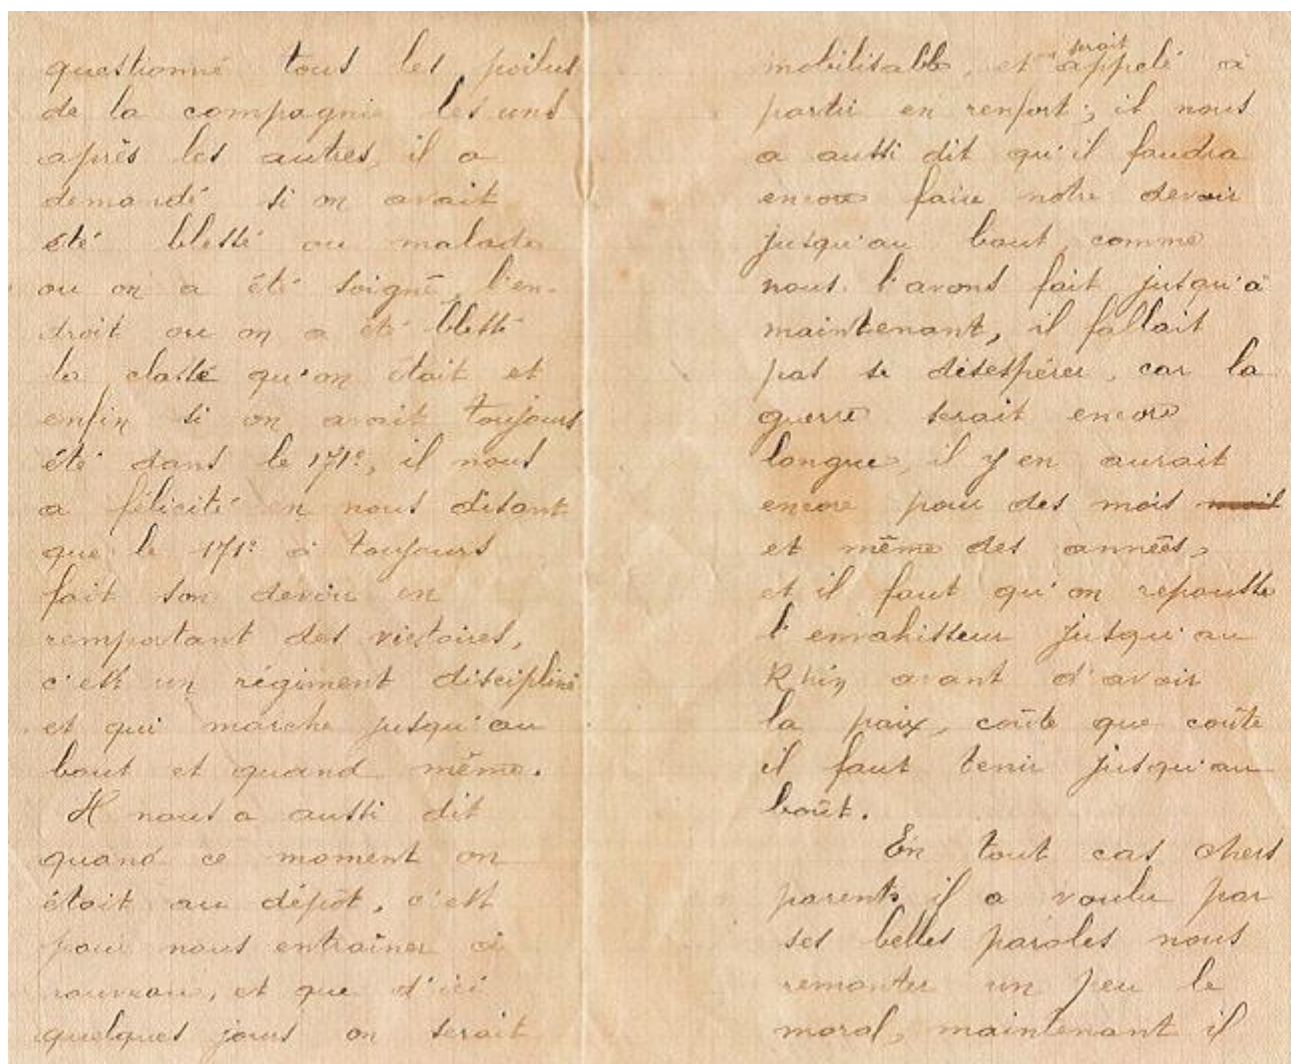 questionné tous les poilus
de la compagnie les uns
après les autres, il a
demandé si on avait
été blessé ou malade
ou on a été soigné, l'en-
droit ou on a été blessé
la classe qu'on était et
enfin si on avait toujours
été dans le 171e, il nous
a félicité en nous disant
que le 171e a toujours
fait son devoir en
remportant des victoires,
c'est un régiment discipliné
et qui marche jusqu'au
bout et quand même.
Il nous a aussi dit
quand ce moment on
était au dépôt, c'est
pour nous entraîner à
nouveau, et que d'ici
quelques jours on serait
mobilisable, et serait appelé à
partir en renfort; il nous
a aussi dit qu'il faudra
encore faire notre devoir
jusqu'au bout, comme
nous l'avons fait jusqu'à
maintenant, il fallait
pas se désespérer, car la
guerre serait encore
longue, il y en aurait
encore pour des mois
et même des années,
et il faut qu'on repousse
l'envahisseur jusqu'au
Rhin avant d'avoir
la paix, coûte que coûte
il faut tenir jusqu'au
boût.
En tout cas chers
parents il a voulu par
ses belles paroles nous
remonter un peu le
moral, maintenant il